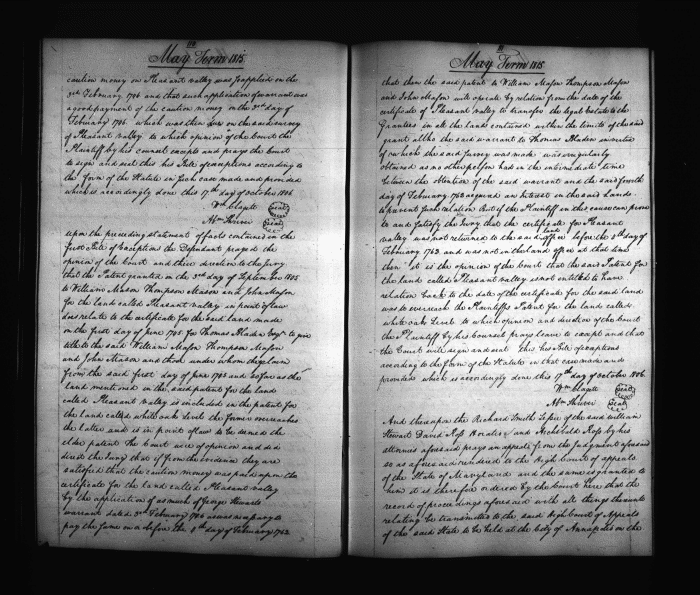 110
May Term 1815
caution money on Pleasant valley was so applied on the
3rd February 1746 and that such application of warrant was
a good payment of the caution money on the 3rd day of
February 1746 which was then due on the said survey
of Pleasant Valley to which opinion of the Court the
Plaintiff by his counsel excepts and prays the Court
to sign and seal this his Bill of exceptions according to
the form of the Statute in such case made and provided
which is accordingly done this 17th day of October 1806
Wm Clagett Seal
Abm Shriver Seal
upon the preceding statement of facts contained in the
first Bill of Exceptions the Defendant prayed the
opinion of the Court and their direction to the Jury
that the Patent granted in the 3rd day of September 1805
to William Mason Thompson Mason and John Mason
for the land called Pleasant Valley in point of law
does relate to the certificate for the said land made
on the first day of June 1745 for Thomas Bladen Esqr to give
title to the said William Mason Thompson Mason
and John Mason and those under whom they claim
from the said first day of June 1745 and so far as the
land mentioned in the said patent for the land
called Pleasant Valley is included in the patent for
the land called white oak Level the former overreaches
the latter and is in point of law to be deemed the
elder patent The Court were of opinion and did
direct the Jury that if from the evidence they are
satisfied that the caution money was paid upon the
certificate for the land called Pleasant Valley
by the application of so much of George Stewarts
warrant dated 3rd February 1746 as was necessary to
pay the same on or before the 5th day of February 1762
11
May Term 1815
that then the said patent to William Mason Thompson Mason
and John Mason will operate by relation from the date of the
certificate of Pleasant Valley to transfer the legal Estate to the
Grantees in all the lands contained within the limits of the said
grant altho the said warrant to Thomas Bladen
of on which the said Survey was made was irregularly
obtained as no other person had in the intermediate time
between the obtention of the said warrant and the said fourth
day of February 1762 acquired an interest in the said Lands
to prevent such relation But if the Plaintiff in this cause can prove
to and satisfy the Jury that the certificate for Pleasant
valley was not returned to the said land office before the 5th day of
February 1762 and was not in the land office at that time
then it is the opinion of the Court that the said Patent for
the land called Pleasant valley is not entitled to have
relation back to the date of the certificate for the said land
so as to overreach the Plaintiffs Patent for the land called
white oak Level to which opinion and direction of the Court
the Plaintiff by his Counsel prays leave to except and that
the Court will sign and seal this his Bill of exceptions
according to the form of the Statute in that case made and
provided which is accordingly done this 17th day of October 1806
Wm Clagett Seal
Abm Shriver Seal
And thereupon the Richard Smith Lessee of the said William
Stewart David Ross Horatio Ross and Archibald Ross by his
attornies aforesaid prays an appeal from the Judgment aforesaid
so as aforesaid rendered to the High Court of appeals
of the State of Maryland and the same is granted to
him it is therefore ordered by the Court here that the
record of proceedings aforesaid with all things thereunto
relating be transmitted to the said High Court of Appeals
of the said State to be held at the City of Annapolis on the